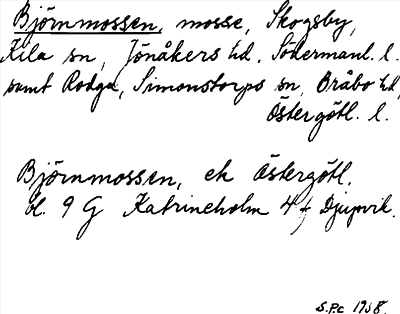 Björnmossen, mosse, Skogsby,
Kila sn, Jönåkers hd, Södermanl. l.
samt Rodga, Simonstorps sn, Bråbo hd,
Östergötl. l.
Björnmossen, ek Östergötl.
bl. 9 G Katrineholm 4 f Djupvik.
S.P.C 1938.